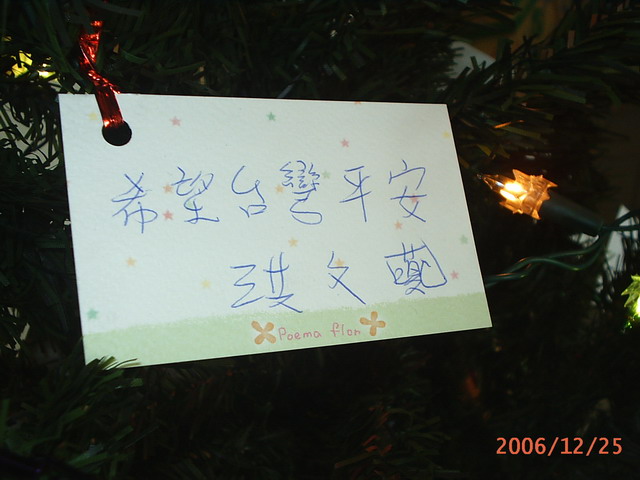 希望台灣平安
文
Poema flor
2006/12/25